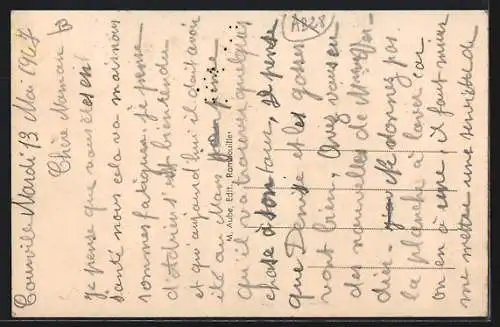 Mardi 13 Mai 1947
Chère Maman
je pense que vous êtes en
santé nous cela va mais nous
sommes fatigués. je pense
d'Adrien s'est bien rendu
et qu'aujourd'hui il doit avoir
été au Mans
Qu'il va trouver quelques
chose à son tour, je pense
que Denise et les gosses
vont bien, Avez vous eu
des nouvelles de
Ne donnez pas
la planche à laver car
on en a une il faut mieux
me mettre une
M. Aube, Edit., Rambouillet